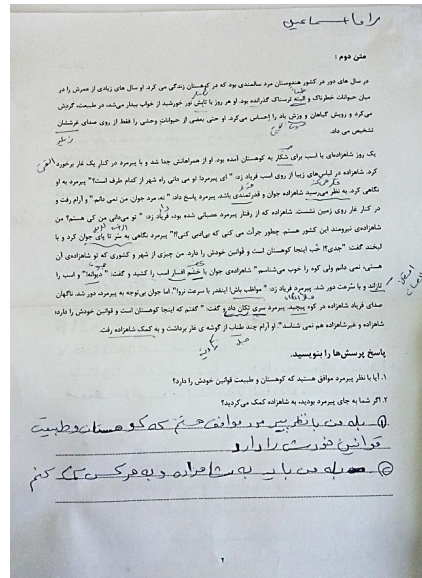 راما اسماعیل
متن دوم :
در سال های دور در کشور هندوستان مرد سالمندی بود که در کوهستان زندگی می کرد. او سال های زیادی از عمرش را در
میان حیوانات خطرناک و البته ترسناک گذرانده بود. او هر روز با تابش نور خورشید از خواب بیدار می‌شد، در طبیعت، گردش
می‌کرد و رویش گیاهان و وزش باد را احساس می‌کرد. او حتی بعضی از حیوانات وحشی را فقط از روی صدای غرششان
تشخیص می داد.
یک روز شاهزاده‌ای با اسب برای شکار به کوهستان آمده بود. او از همراهانش جدا شد و با پیرمرد در کنار یک غار برخورد
کرد. شاهزاده در لباس‌های زیبا از روی اسب فریاد زد: " ای پیرمرد! تو می دانی راه شهر از کدام طرف است؟" پیرمرد به او
نگاهی کرد. به نظر می‌رسید شاهزاده جوان و قدرتمندی باشد. پیرمرد پاسخ داد: "نه، مرد جوان، من نمی دانم" و آرام رفت و
در کنار غار روی زمین نشست. شاهزاده که از رفتار پیرمرد عصبانی شده بود، فریاد زد: " تو می‌دانی من کی هستم؟ من
شاهزاده‌ی نیرومند این کشور هستم چطور جرأت می کنی که بی‌ادبی کنی؟!" پیرمرد نگاهی به سر تا پای جوان کرد و با
لبخند گفت: "جدی؟! خُب اینجا کوهستان است و قوانین خودش را دارد. من چیزی از شهر و کشوری که تو شاهزاده‌ی آن
هستی، نمی دانم ولی کوه را خوب می‌شناسم." شاهزاده‌ی جوان با خشم افسار اسب را کشید و گفت: "دیوانه!" و اسب را
تازاند و با سُرعت دور شد. پیرمرد فریاد زد: "مواظب باش! اینقدر با سرعت نرو!". اما جوان بی‌توجه به پیرمرد دور شد. ناگهان
صدای فریاد شاهزاده در کوه پیچید. پیرمرد سری تکان داد و گفت: " گفتم که اینجا کوهستان است و قانون خودش را دارد؛
شاهزاده و غیرشاهزاده هم نمی شناسد". او آرام چند طناب از گوشه ی غار برداشت و به کمک شاهزاده رفت.
پاسخ پرسش‌ها را بنویسید.
۱. آیا با نظر پیرمرد موافق هستید که کوهستان و طبیعت قوانین خودش را دارد؟
۲. اگر شما به جای پیرمرد بودید، به شاهزاده کمک می‌کردید؟
① بله من با نظر پیر مرد موافق هستم که کوهستان و طبیعت
قوانین خودش را دارد
② بله من باید به شاهزاده و به هر کس کمک کنم
۲